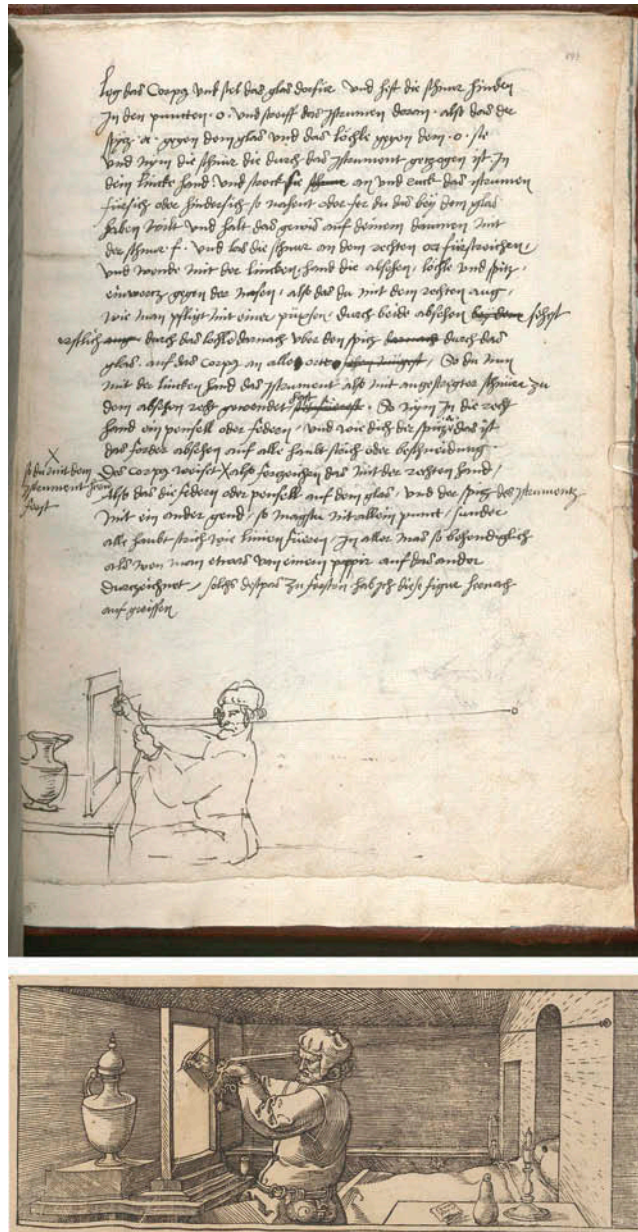 leg das Corpus und stel das glas dofür und hest die schnur hinden
In den puncten · o · und streiff das Istrument daran · also das der
spitz · a · gegen dem glas und das löchle gegen dem · o · ste
und nym die schnur die durch das Istrument gezogen ist In
dein lincke hand und streck sie schnur an und ruck das istrument
fürsich oder hindersich so nahent oder fer du das bey dem glas
haben wilt und halt das gewis auf deinem daumen mit
der schnur · f · und las die schnur an dem rechten or fürstreichen
und wende mit der lincken hand die absehen, löchle und spitz,
einwertz gegen der nasen, also das du mit dem rechten aug,
wie man pfligt mit einer püxsen, durch beide absehen sehgst
erstlich durch das löchle darnach uber den spitz durch das
glas · auf das Corpus an alle ort · So du nun
mit der lincken hand das Istrument also mit angestregter schnur zu
dem absehen recht gewendet hast · So nym In die recht
hand ein pensell oder federn, und wie dich die spitz a das ist
das forder absehen auf alle haubt strich oder beschneidung
X
so du mit dem
Istrument
ferst
des Corpus weiset X also ferzeichen das mit der rechten hand,
Also das die federn oder pensell auf dem glas, und der spitz des Istrumentz
mit ein ander gend, so magstu nit allein punct, sunder
alle haubt strich wie linien füeren, In aller mas so behendiglich
als wen man etwas van einem pappir auf das ander
durzeichnet, solchs destpas zu fersten hab ich diese figur hernach
auf gerissen